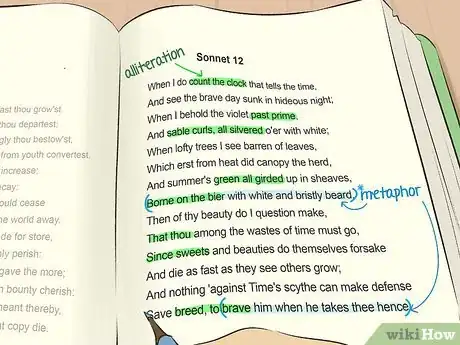 ast thou grow'st
thou departest:
gly thou bestow'st,
from youth convertest.
increase:
ecay:
ould cease
he world away.
de for store,
ly perish:
gave the more;
n bounty cherish:
meant thereby,
at copy die.
alliteration
Sonnet 12
When I do count the clock that tells the time,
And see the brave day sunk in hideous night;
When I behold the violet past prime,
And sable curls, all silvered o'er with white;
When lofty trees I see barren of leaves,
Which erst from heat did canopy the herd,
And summer's green all girded up in sheaves,
(Borne on the bier with white and bristly beard)
*metaphor
Then of thy beauty do I question make,
That thou among the wastes of time must go,
Since sweets and beauties do themselves forsake
And die as fast as they see others grow;
And nothing 'against Time's scythe can make defense
Save breed, to (brave him when he takes thee hence)
wikiHow